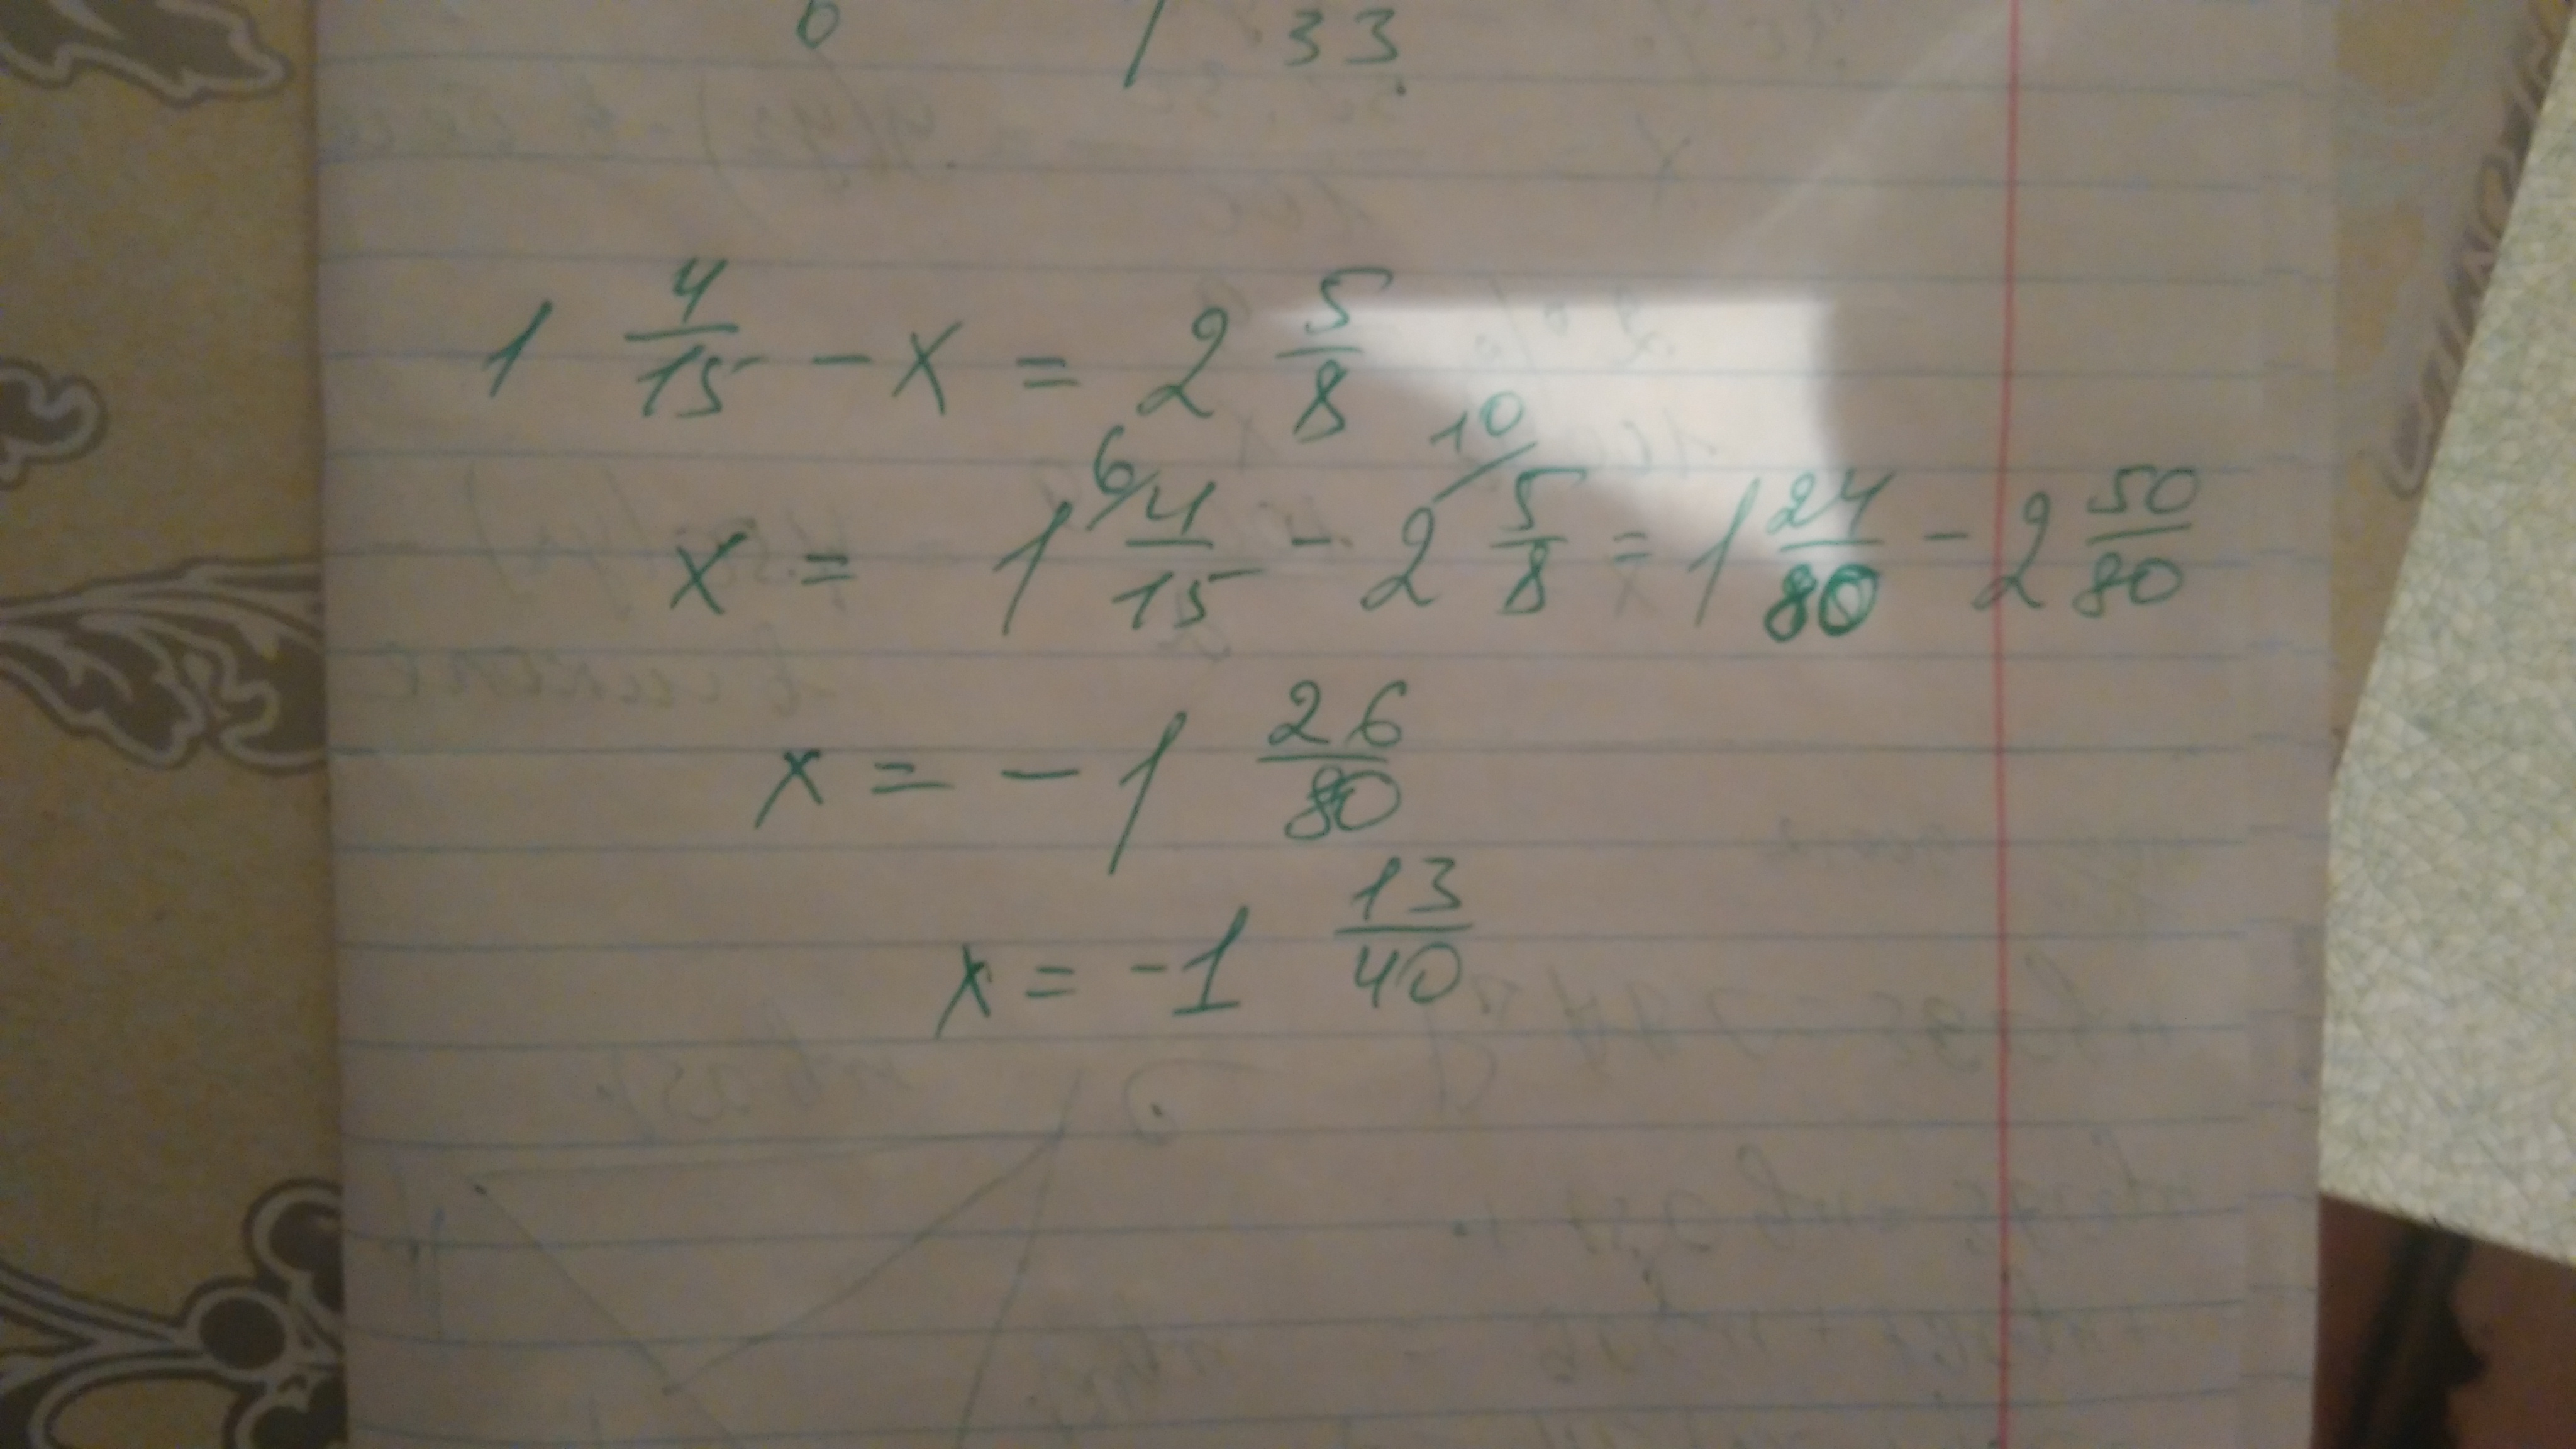 6 1 33
1 4/15 - x = 2 5/8
x = 1 6/ 4/15 - 2 10/ 5/8 = 1 24/80 - 2 50/80
x = - 1 26/80
x = -1 13/40